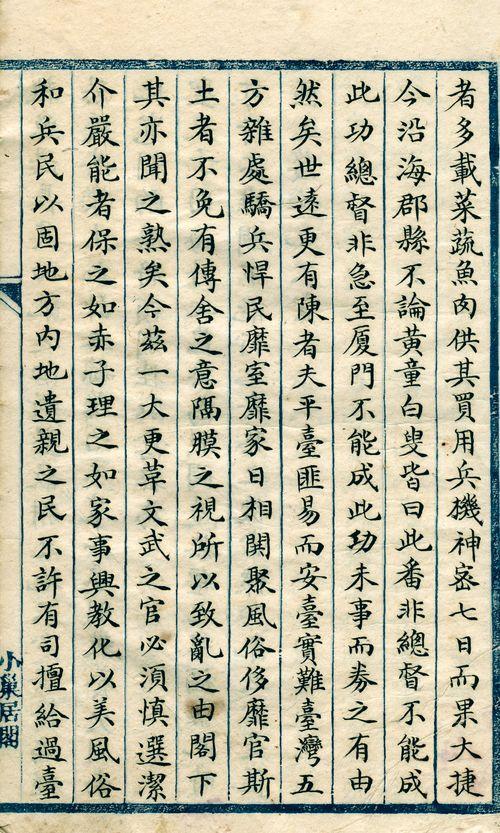 者多載菜蔬魚肉供其買用兵機神密七日而果大捷
今沿海郡縣不論黃童白叟皆曰此番非總督不能成
此功總督非急至厦門不能成此功未事而券之有由
然矣世遠更有陳者夫平臺匪易而安臺實難臺灣五
方雜處驕兵悍民靡室靡家日相閧聚風俗侈靡官斯
土者不免有傳舍之意隔膜之視所以致亂之由閣下
其亦聞之熟矣今茲一大更草文武之官必須慎選潔
介嚴能者保之如赤子理之如家事興教化以美風俗
和兵民以固地方內地遺親之民不許有司擅給過臺
小巢居閣